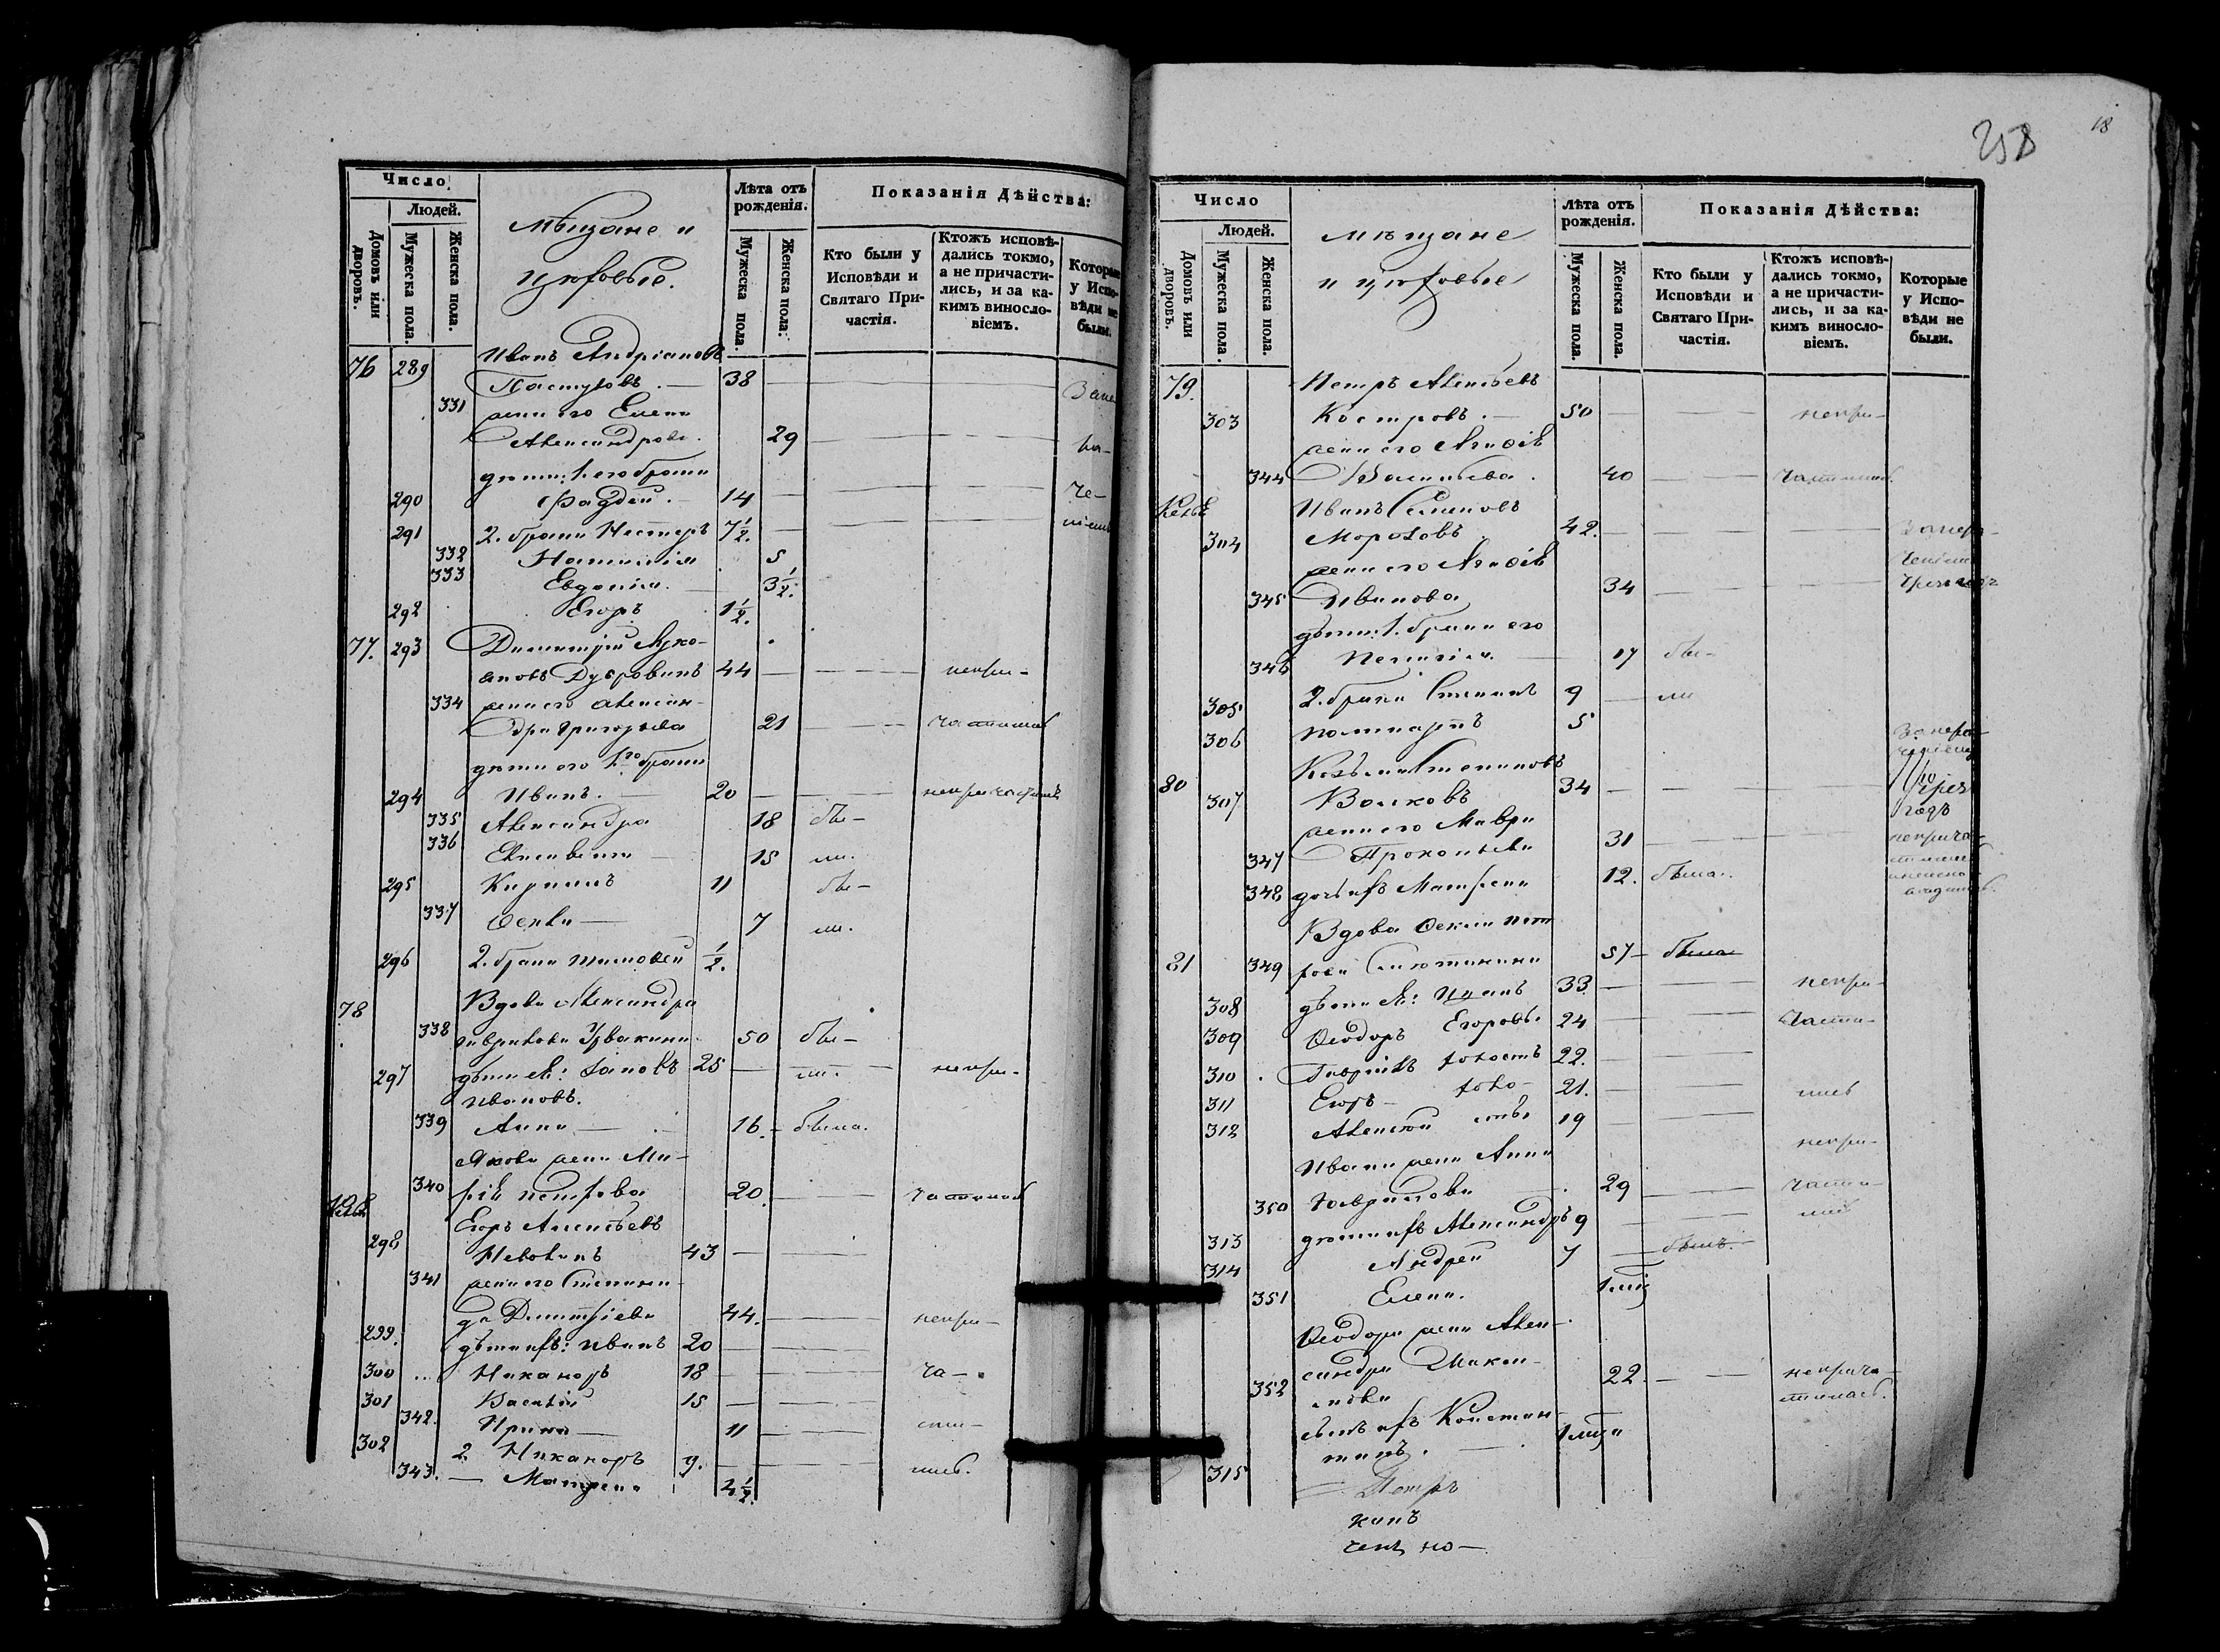 258
18
Число
Людей.
Домовъ или дворовъ.
Мужеска пола.
Женска пола.
Мѣщане и
цеховые.
Лѣта отъ рожденія.
Мужеска пола.
Женска пола.
Показанія Дѣйства:
Кто были у Исповѣди и Святаго Причастія.
Ктожъ исповѣдались токмо, а не причастились, и за какимъ винословіемъ.
Которые у Исповѣди не были.
76 289 Иванъ Андріановъ
Пастуховъ. 38
331 жена его Елена
Александрова. 29
дѣти: 1. его брака
290 Фаддей. 14
291 2. брака Нестеръ 7½.
332 Наталія 5
333 Евдокія. 3½.
292 Егоръ 1½.
77. 293 Димитрій
Дубровинъ 44 непри-
334 жена его Алексан-
дра Григорьева 21 частились
дѣти его 1го брака
294 Иванъ. 20
335 Александра 18 бы-
336 Елисавета 15 ли.
295 Кириллъ 11 бы-
337 Ѳекла 7 ли.
296 2. брака Тимоѳей ½.
78 Вдова Александра
338 50 бы-
297 дѣти ея: Іаковъ 25 ли. непри-
Ивановъ.
339 Анна 16. была.
Якова жена Ма-
340 рія Петрова 20. частились
Егоръ Алексѣевъ
298 43
341 жена его Степани-
да Димитріева 44. непри-
299. дѣти ихъ: Иванъ 20
300 Никаноръ 18 ча-
301 Василій 15
342. Ирина 11 сти-
302 2. Никаноръ 9. лись.
343. Матрена 4½.
Число
Людей.
Домовъ или дворовъ.
Мужеска пола.
Женска пола.
мѣщане
и цеховые
Лѣта отъ рожденія.
Мужеска пола.
Женска пола.
Показанія Дѣйства:
Кто были у Исповѣди и Святаго Причастія.
Ктожъ исповѣдались токмо, а не причастились, и за какимъ винословіемъ.
Которые у Исповѣди не были.
79. Петръ Алексѣевъ
303 Костровъ. 50 непри-
жена его Агафія
344 Васильева. 40 частились.
Иванъ Семеновъ
304 Морозовъ 42.
жена его Агафія
345 Иванова 34
дѣти: 1. брака его
346 Пелагія. 17 бы-
305 2. брака Степанъ 9 ли
306 Поликарпъ 5
Козьма Степановъ
80 307 Волковъ 34
жена его Мавра
347 Прокопьева 31
348 дочь ихъ Матрена 12. была.
Вдова Ѳекла Пет
81 349 рова 57 была
308 дѣти ея: Иванъ 33. непри-
309 Ѳеодоръ Егоровы 24 части-
310 Гавріилъ холость 22.
311 Егоръ холо- 21. лись
312 Алексѣй сты 19
Ивана жена Анна непри-
350 Гаврилова 29 части-
313 дѣти ихъ Александръ 9 лись
314 Андрей 7 былъ.
351 Елена.
Ѳеодора жена Алек-
352 сандра 22. неприча-
стилась.
сынъ ихъ Констан-
тинъ.
315 Петръ